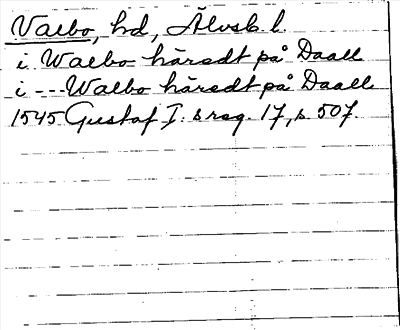 Valbo, hd, Älvsb. l.
i Walbo häredt på Daall
i --- Walbo häredt på Daall
1545 Gustaf I:s reg. 17, s. 507.